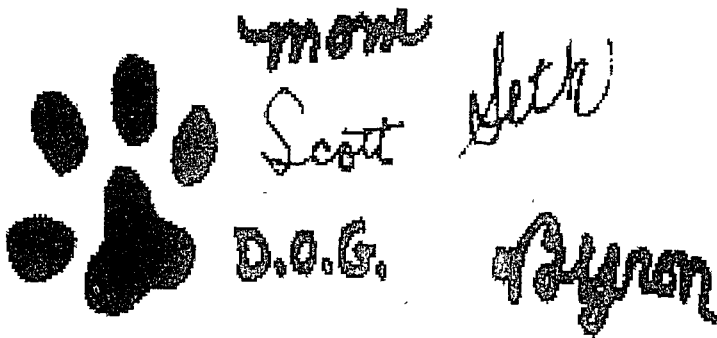 mom
Scott
Seth
D.O.G.
Byron